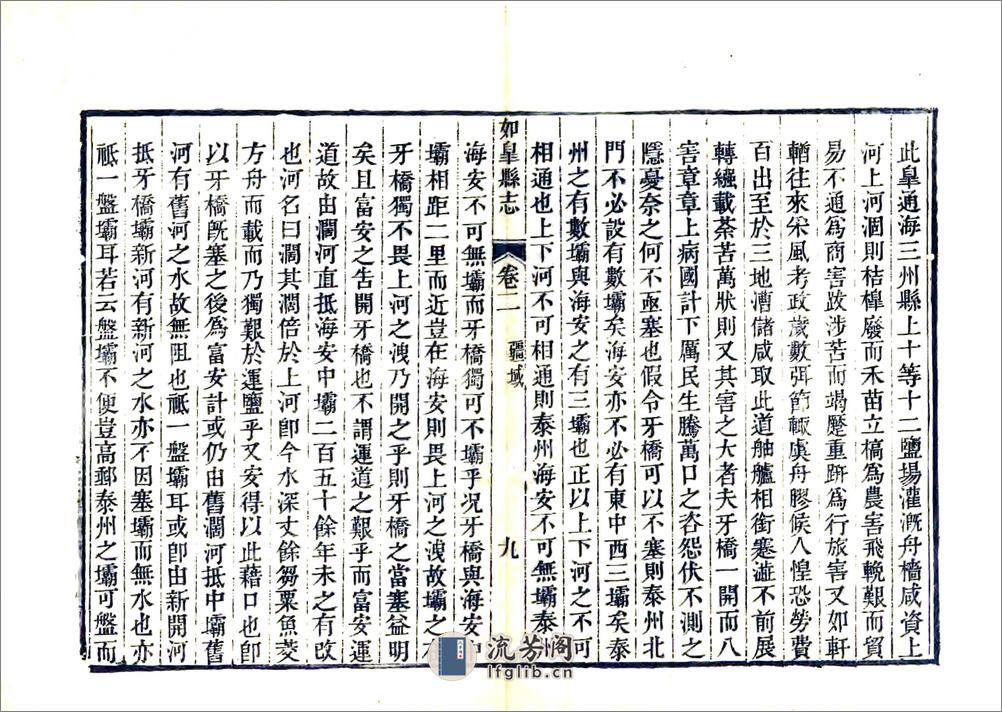 此皐通海三州縣上十等十二鹽場灌漑舟檣咸資上
河上河涸則桔橰廢而禾苗立槁爲農害飛輓艱而貿
易不通爲商害跋涉苦而竭蹷重趼爲行旅害又如軒
輶往來宋風考政歲數弭節輙虞舟膠候人惶恐勞費
百出至於三地漕儲咸取此道舳艫相銜蹇澁不前展
轉繩載荼苦萬狀則又其害之大者夫牙橋一開而八
害章章上病國計下厲民生騰萬口之咨怨伏不測之
隱憂奈之何不亟塞也假令牙橋可以不塞則泰州北
門不必設有數壩矣海安亦不必有東中西三壩矣泰
州之有數壩與海安之有三壩也正以上下河之不可
相通也上下河不可相通則泰州海安不可無壩泰州
如皐縣志
卷二
疆域
九
海安不可無壩而牙橋獨可不壩乎况牙橋與海安中
壩相距二里而近豈在海安則畏上河之洩故壩之在
牙橋獨不畏上河之洩乃開之乎則牙橋之當塞益明
矣且富安之告開牙橋也不謂運道之艱乎而富安運
道故由澗河直抵海安中壩二百五十餘年未之有改
也河名曰澗其澗倍於上河卽今水深丈餘芻粟魚菱
方舟而載而乃獨艱於運鹽乎又安得以此藉口也卽
以牙橋旣塞之後爲富安計或仍由舊澗河抵中壩舊
河有舊河之水故無阻也祗一盤壩耳或卽由新開河
抵牙橋壩新河有新河之水亦不因塞壩而無水也亦
祗一盤壩耳若云盤壩不便豈高郵泰州之壩可盤而
流芳阁
lfglib.cn